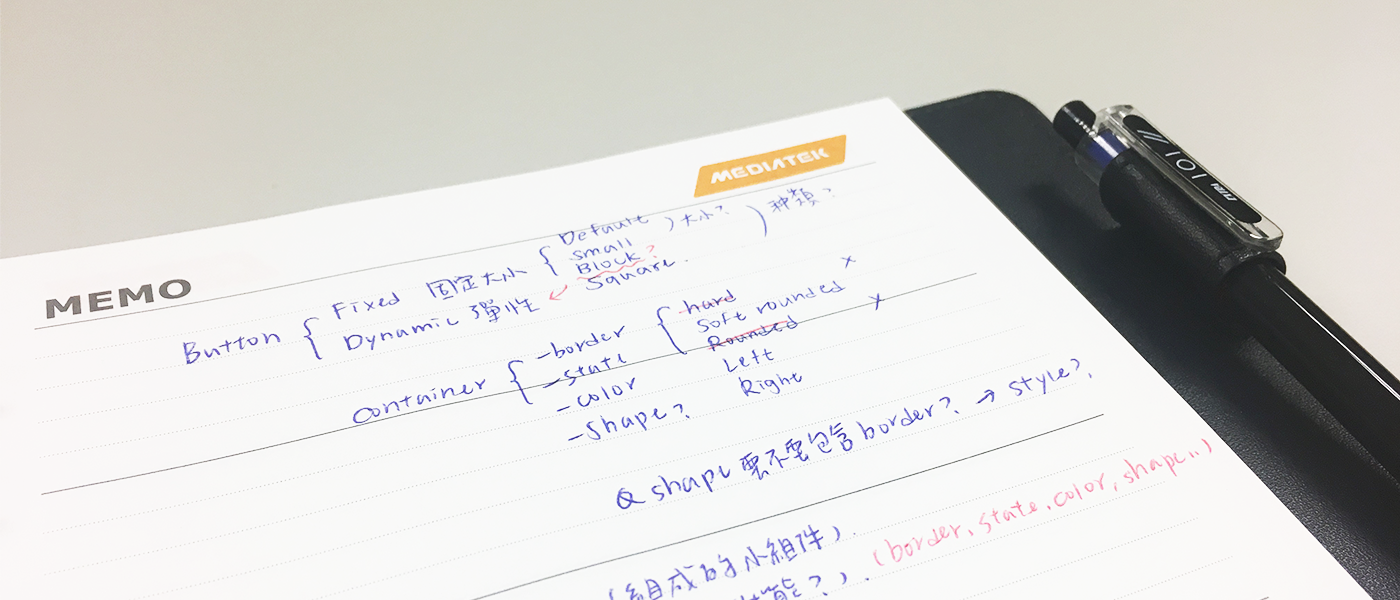 MEDIATEK
MEMO
Default
Small ) 大小? ) 種類?
Block?
Square.
Button { Fixed 固定大小
Dynamic 彈性
container { -border
-state
-color
-shape?
hard
Soft rounded x
Rounded x
Left
Right
Q shape 要不要包含 border? → style?.
(組成的小組件).
能?). (border, state, color, shape..)
101